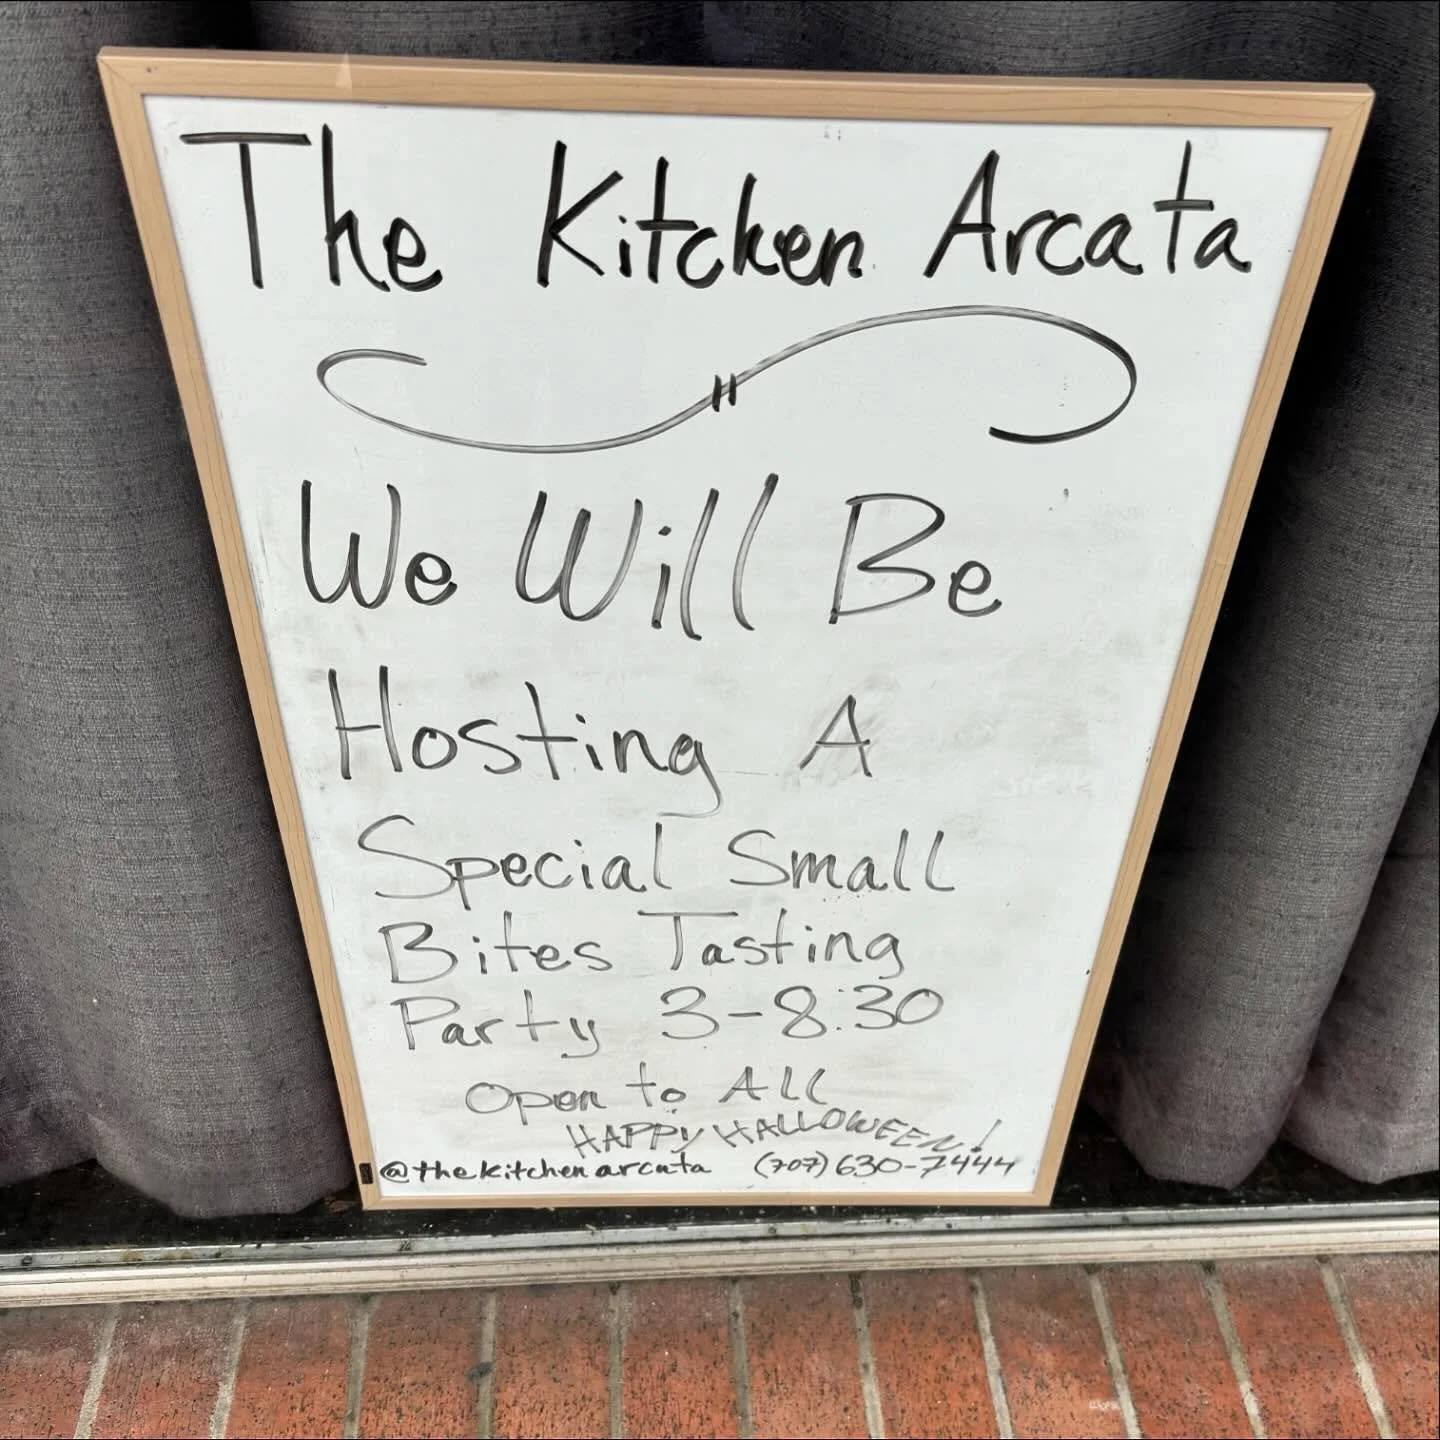 The Kitchen Arcata
We Will Be
Hosting A
Special Small
Bites Tasting
Party 3-8:30
Open to All
HAPPY HALLOWEEN!
@thekitchenarcata (707) 630-7444